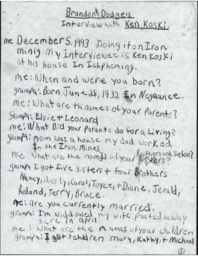 Brandon Dodgey
Interview with Ken Koski
me: December 5, 1993 Doing it on Iron
minig My Interviewe is Ken Koski
at his house In Ishpheming.
me: When and were you born?
grampa: Born June-28, 1932 In Negaunee.
me: What are thi names of your Parent?
Grampa: Elsie + Leonard
me: What Did your Parents do for a Living?
grampa: mom was a house ma dad worked
In the Iron Mines
me: What are the names of your Brothers and Sisters?
grampa: I got Five sisters + four Brothers
Nancy, Carol, Joyce, + Diane, Jerald,
Roland, Terry, Bruce.
me: are you currently married.
grampa: I'm widdowed my wife passed away
here in april
me: What are the names of your children
grampa: I got 3 children mary, Kathy, + Micheal